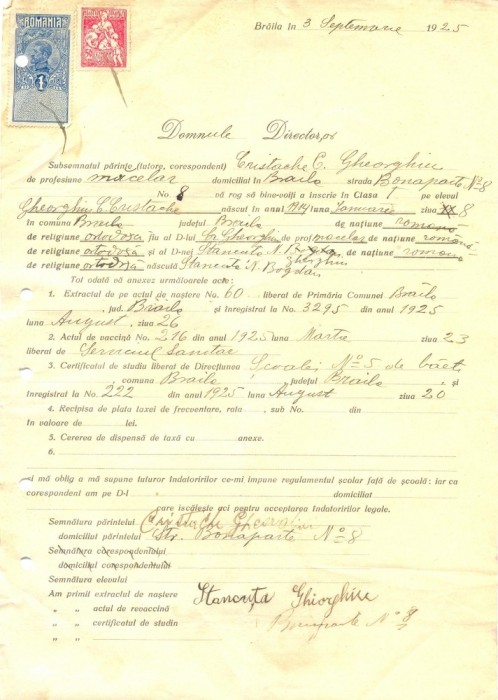 ROMANIA
1
Brăila în 3 Septemvrie 1925
Domnule Director,
Subsemnatul părinte (tutore, corespondent) Cristache C. Gheorghiu
de profesiune măcelar domiciliat în Braila strada Bonaparte No 8
No. 8 vă rog să bine-voiți a înscrie în Clasa I pe elevul
Gheorghiu C. Cristache născut în anul 1914 luna Ianuarie ziua 8
în comuna Braila județul Braila de națiune română
de religiune ortodoxă fiu al D-lui Cr. Gheorghiu de prof. măcelar de națiune română
de religiune ortodoxă și al D-nei Stancuta N. Gheorghiu de națiune română
de religiune ortodoxă născută Stancuta N. Bogdan
Tot odată vă anexez următoarele acte:
1. Extractul de pe actul de naștere No. 60 liberat de Primăria Comunei Brăila
, jud. Brăila și înregistrat la No. 3295 din anul 1925
luna August, ziua 26
2. Actul de vaccină No. 216 din anul 1925 luna Martie ziua 23
liberat de Serviciul Sanitar
3. Certificatul de studiu liberat de Direcțiunea Școalei No 5 de băeți
, comuna Braila, județul Brăila, și
înregistrat la No. 222 din anul 1925 luna August ziua 20
4. Recipisa de plata taxei de frecventare, rata . sub No. din
în valoare de lei.
5. Cererea de dispensă de taxă cu anexe.
6.
și mă oblig a mă supune tuturor îndatoririlor ce-mi impune regulamentul școlar față de școală: iar ca
corespondent am pe D-l domiciliat
care iscălește aci pentru acceptarea îndatoririlor legale.
Semnătura părintelui Cristache Gheorghiu
domiciliul părintelui Str. Bonaparte No 8
Semnătura corespondentului
domiciliul corespondentului
Semnătura elevului
Am primit extractul de naștere Stancuța Ghiorghiu
„ „ actul de revaccină Bonaparte No 8
„ „ certificatul de studiu
„ „